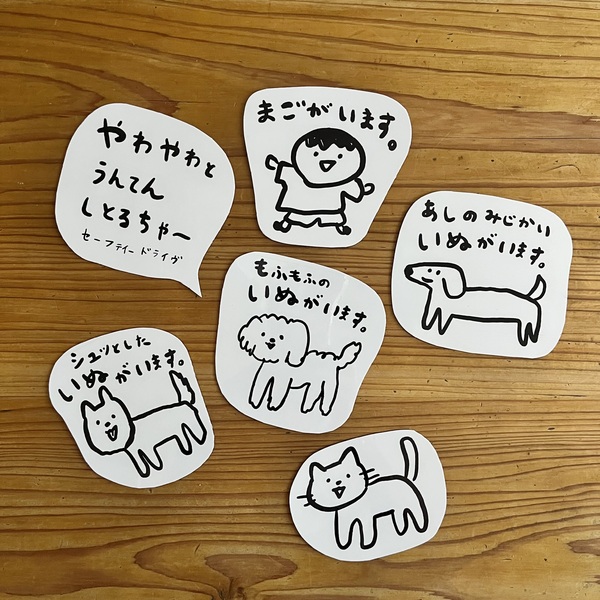 まごがいます。
やわやわと
うんてん
しとるちゃー
セーフティー ドライヴ
あしのみじかい
いぬがいます。
もふもふの
いぬがいます。
シュッとした
いぬがいます。